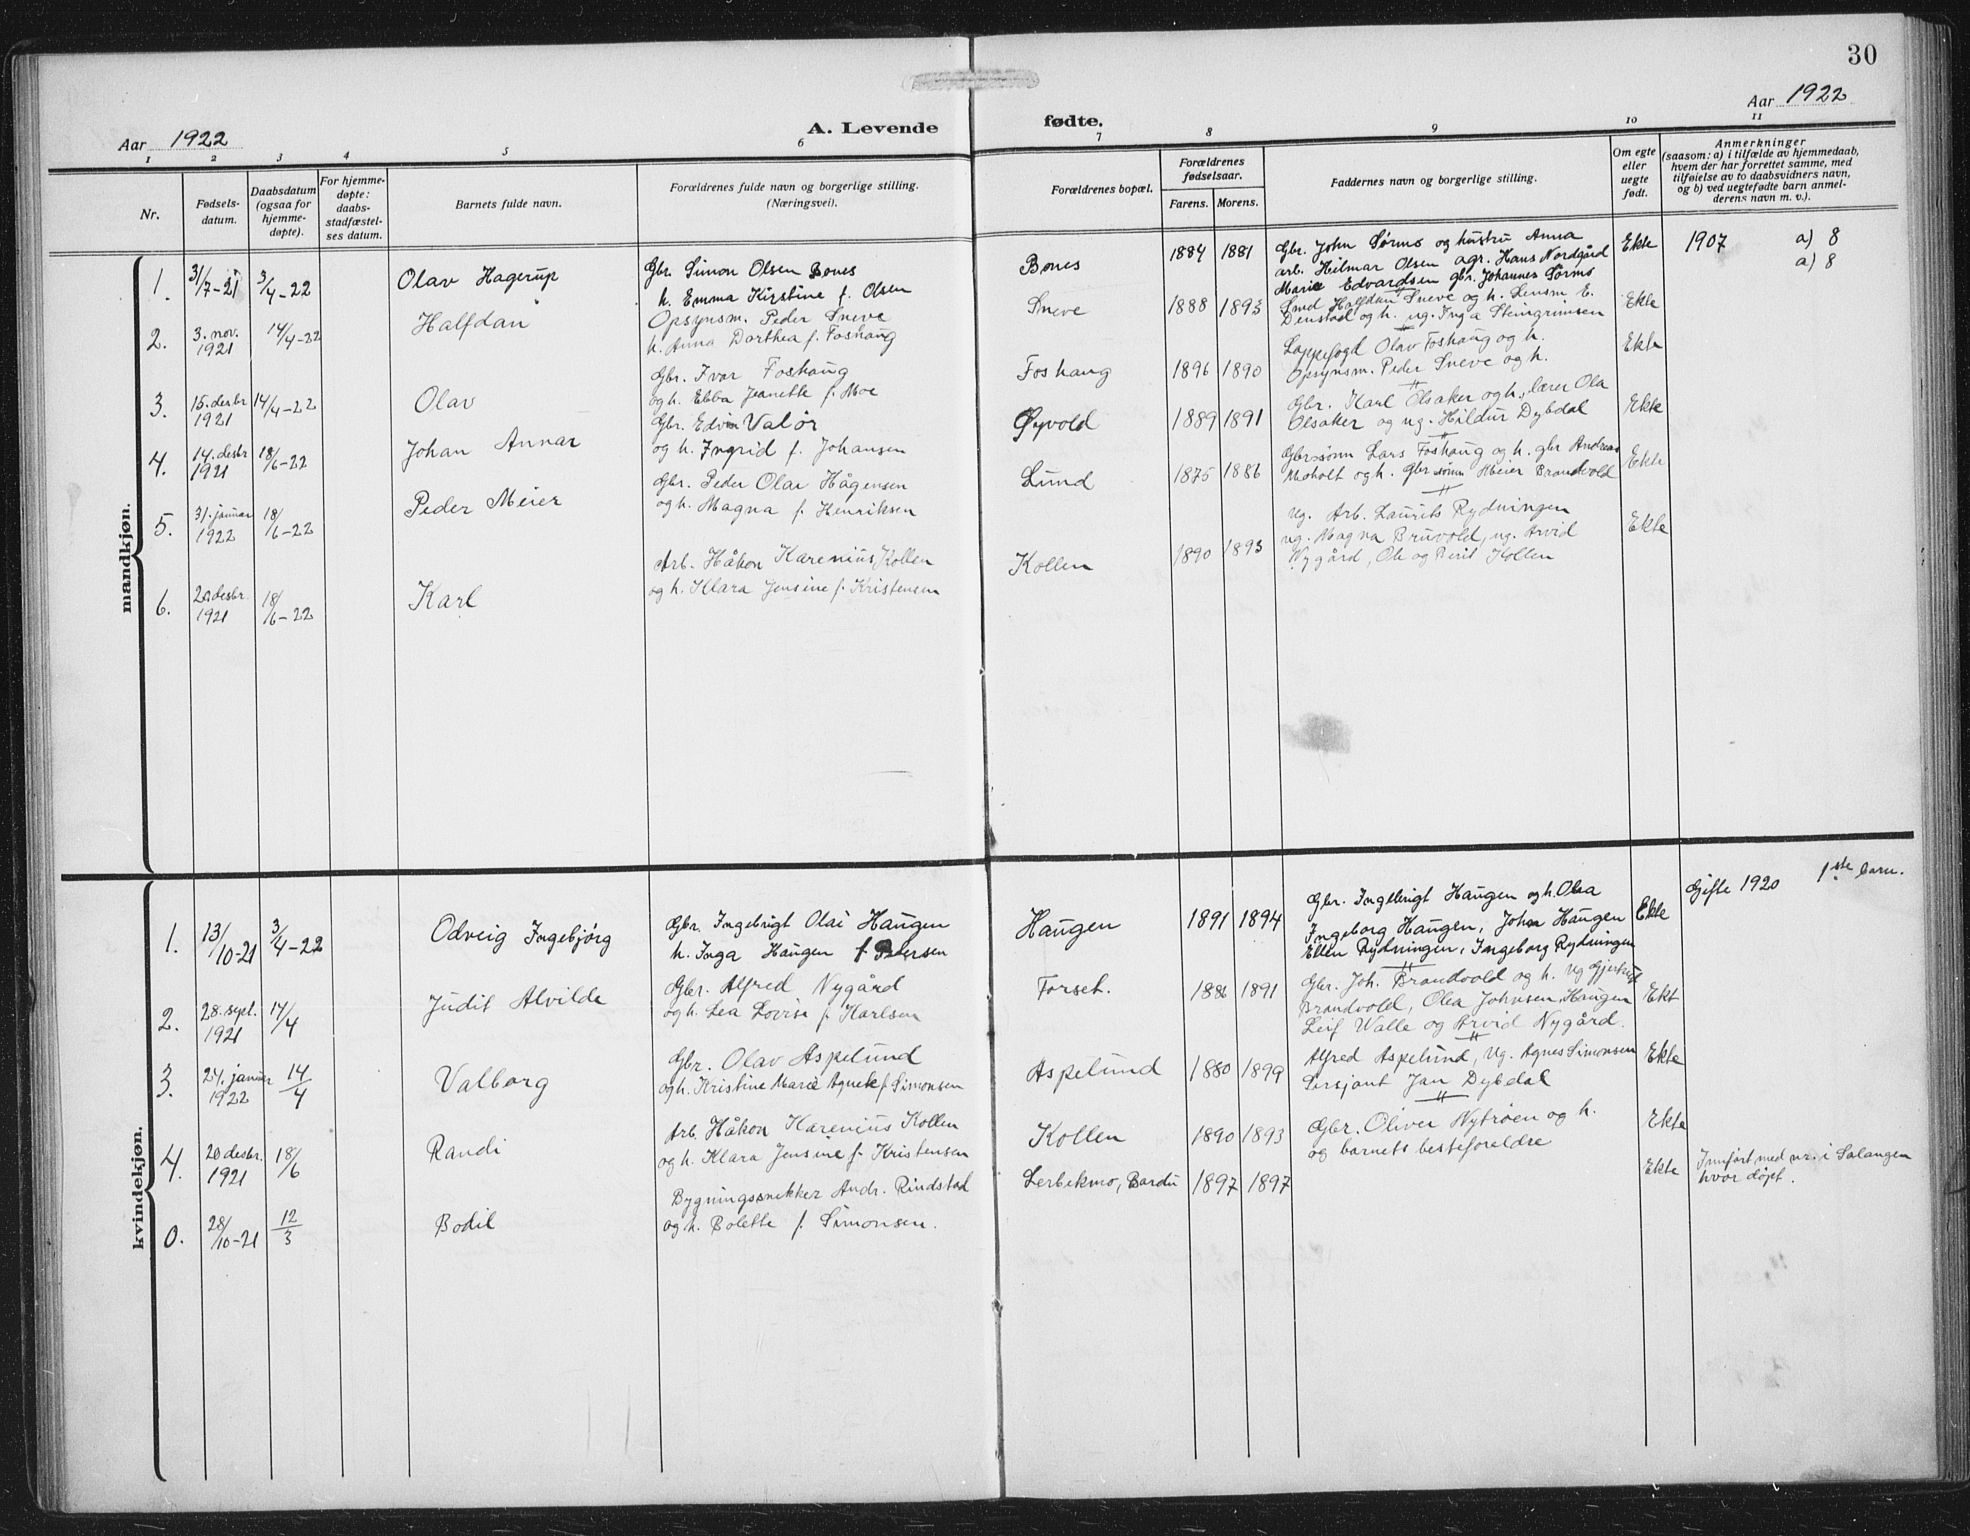 30
Aar 1922
A. Levende fødte.
Aar 1922
1 2 3 4 5 6 7 8 9 10 11
Nr.
Fødsels-
datum.
Daabsdatum
(ogsaa for
hjemme-
døpte).
For hjemme-
døpte:
daabs-
stadfæstel-
ses datum.
Barnets fulde navn.
Forældrenes fulde navn og borgerlige stilling.
(Næringsvei).
Forældrenes bopæl.
Forældrenes
fødselsaar.
Farens. Morens.
Faddernes navn og borgerlige stilling.
Om egte
eller
uegte
født.
Anmerkninger
(saasom: a) i tilfælde av hjemmedaab,
hvem der har forrettet samme, med
tilføielse av to daabsvidners navn,
og b) ved uegtefødte barn anmel-
derens navn m. v.).
mandkjøn.
1. 31/7-21 3/4-22 Olav Hagerup
Gbr. Simon Olsen Bones
h. Emma Kirstine f. Olsen
Bones 1884 1881
Gbr. John Sørmo og hustru Anna
arb. Hilmar Olsen agr. Hans Nordgård
Marie Edvardsen gbr. Johannes Sørmo
Ekte 1907 a) 8
a) 8
2. 3. nov. 1921 14/4-22 Halfdan
Opsynsm. Peder Sneve
h. Anna Dorthea f. Foshaug
Sneve 1888 1893
Smed Halfdan Sneve og h. Lensm. E.
Denstad og h. ug. Inga Steingrimsen
Ekte
3. 15. desbr 1921 14/4-22 Olav
Gbr. Ivar Foshaug
og h. Ebba Jeanette f. Moe
Foshaug 1896 1890
Lappefogd Olav Foshaug og h.
Opsynsm. Peder Sneve og h.
Ekte
4. 14. desbr 1921 18/6-22 Johan Annar
Gbr. Edvin Valør
og h. Ingrid f. Johansen
Øyvold 1889 1891
Gbr. Karl Olsaker og h., lærer Ola
Olsaker og ug. Hildur Dybdal
Ekte
5. 31. januar 1922 18/6-22 Peder Meier
Gbr. Peder Olav Hågensen
og h. Magna f. Henriksen
Lund 1875 1886
Gbrsønn Lars Foshaug og h. gbr Andreas
Moholt og h. Gbr sønn Meier Brandvold
Ekte
6. 20 desbr. 1921 18/6-22 Karl
Arb. Håkon Karenius Kollen
og h. Klara Jensine f. Kristensen
Kollen 1890 1893
ug. Arb. Laurits Rydningen
ug. Magna Bruvold, ug. Arvid
Nygård, Ole og Beril Kollen
Ekte
kvindekjøn.
1. 13/10-21 3/4-22 Odveig Ingebjørg
Gbr. Ingebrigt Olai Haugen
h. Inga Haugen f. Pedersen
Haugen 1891 1894
Gbr. Ingebrigt Haugen og h. Olea
Ingeborg Haugen, Johan Haugen
Ellen Rydningen, Ingeborg Rydningen
Ekte Gifte 1920 1ste barn.
2. 28. sept. 1921 14/4 Judit Alvilde
Gbr. Alfred Nygård
og h. Lea Lovise f. Karlsen
Forset. 1886 1891
Gbr. Joh. Brandvold og h. ug Gjertrud
Brandvold, Olea Johnsen, Haugen
Leif Walle og Arvid Nygård.
Ekt
3. 24. januar 1922 14/4 Valborg
Gbr. Olav Aspelund
og h. Kristine Marie Agnek f. Simonsen
Aspelund 1880 1899
Alfred Aspelund, ug. Agnes Simonsen
Sersjant Jan Dybdal
Ekte
4. 20 desbr. 1921 18/6 Randi
Arb. Håkon Karenius Kollen
og h. Klara Jensine f. Kristensen
Kollen 1890 1893
Gbr. Oliver Nytrøen og h.
og barnets besteforeldre
Ekte
0. 28/10-21 12/3 Bodil
Bygningssnikker Andr. Rindstad
og h. Bolette f. Simonsen.
Lerbekmo, Bardu 1897 1897
Ekte Innført med nr. i Salangen
hvor døpt.